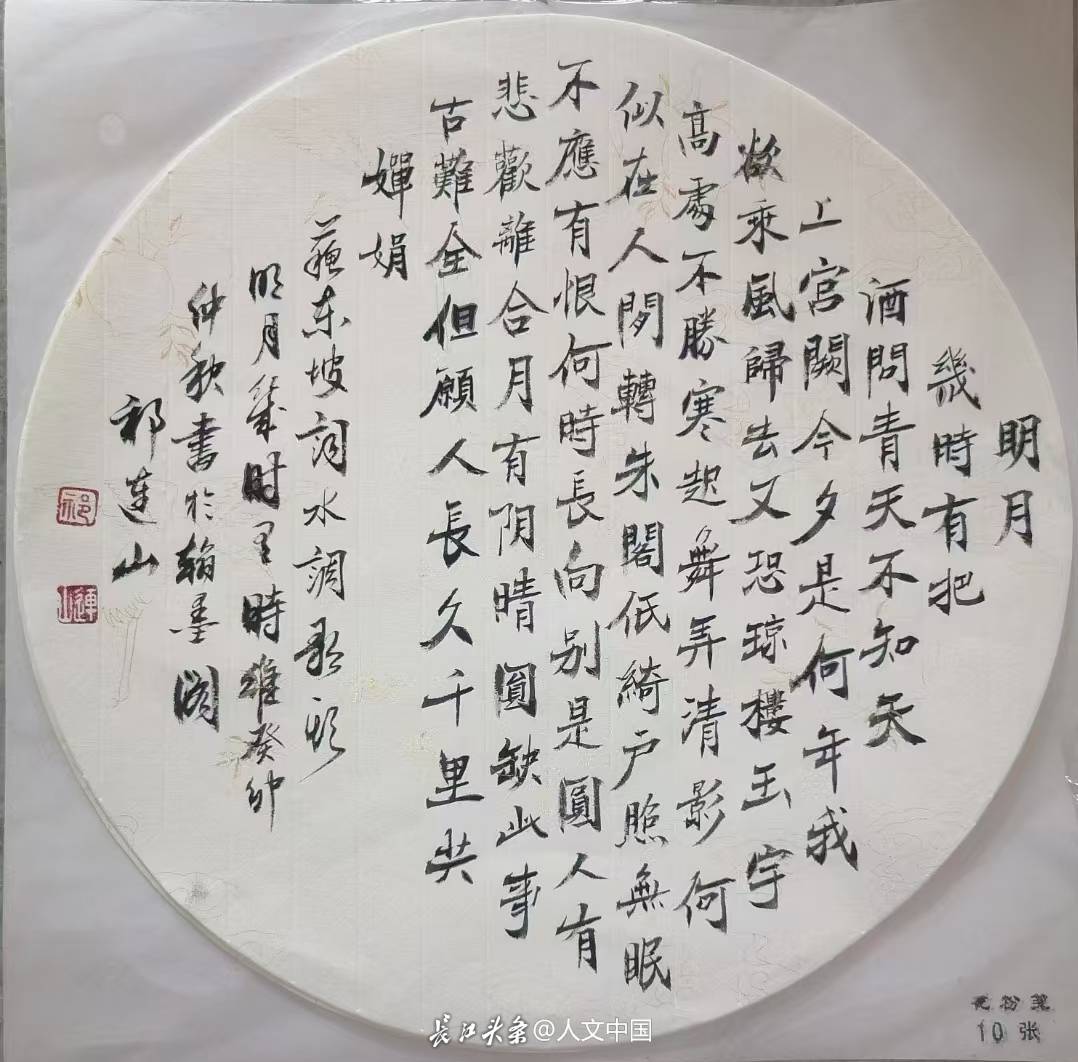 明月
幾時有把
酒問青天不知天
上宮闕今夕是何年我
欲乘風歸去又恐琼樓玉宇
高處不勝寒起舞弄清影何
似在人間轉朱閣低綺户照無眠
不應有恨何時長向别是圓人有
悲歡離合月有阴晴圓缺此事
古難全但願人長久千里共
嬋娟
蘇东坡詞水調歌头
明月幾时有時維癸卯
仲秋書於翰墨阁
祁連山
祁
連山
粉笺
10张
長江头条@人文中国